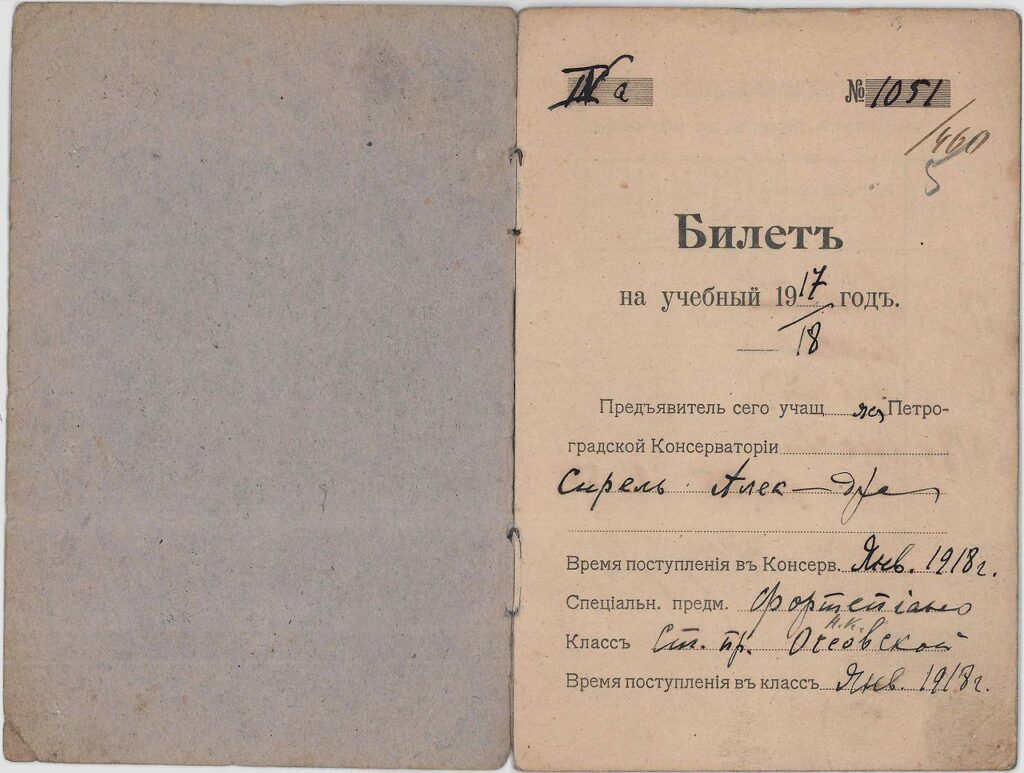 IV а № 1051
/460
5
Билетъ
на учебный 1917 годъ.
18
Предъявитель сего учащ яся Петро-
градской Консерваторіи
Сирель Алек — дра
Время поступленія въ Консерв. Янв. 1918 г.
Спеціальн. предм. Фортепіано
Н.К.
Классъ Ст. пр. Оссовской
Время поступленія въ классъ Янв. 1918 г.